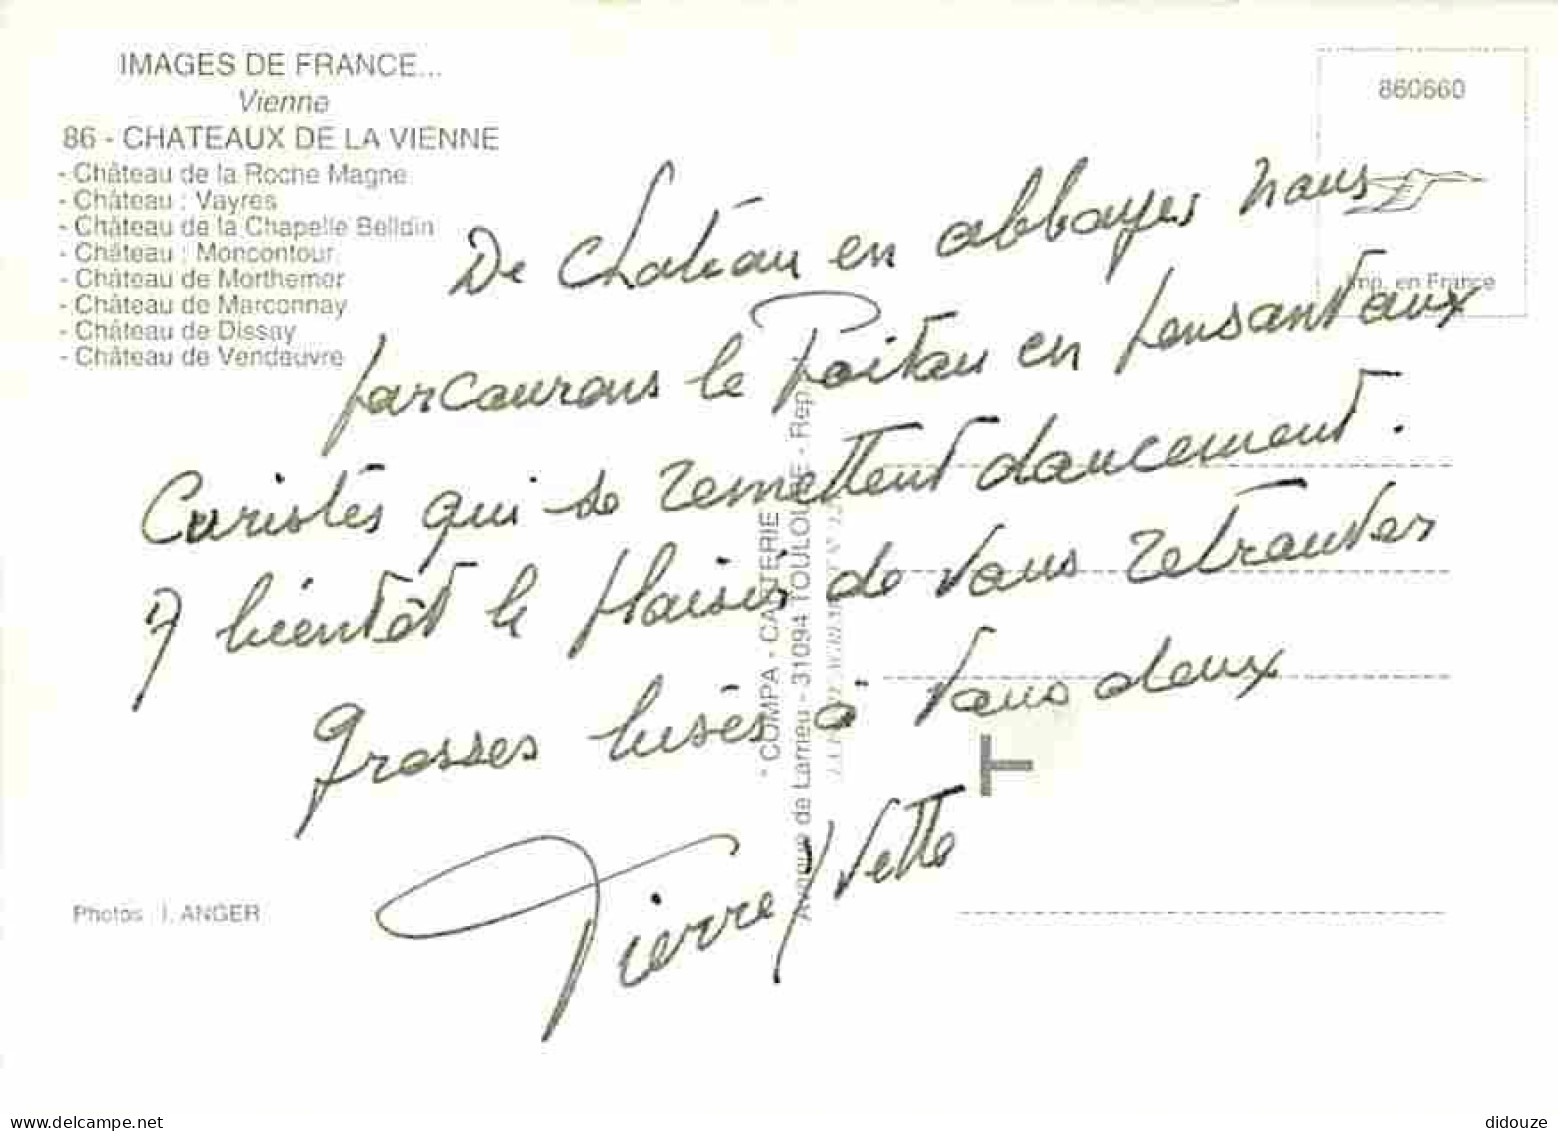 IMAGES DE FRANCE...
Vienne
86 - CHATEAUX DE LA VIENNE
- Château de la Roche Magne
- Château : Vayres
- Château de la Chapelle Belldin
- Château : Moncontour
- Château de Morthemer
- Château de Marconnay
- Château de Dissay
- Château de Vendeuvre
860660
Imp. en France
De Château en abbayes nous
parcourons le Poitou en pensant aux
Curistes qui se remettent doucement.
A bientôt le plaisir de vous retrouver
grosses bises à vous deux
Pierre Yvette
" COMPA - CARTERIE
Avenue de Larrieu - 31094 TOULOUSE - Rep.
T
Photos : J. ANGER
delcampe.net
didouze